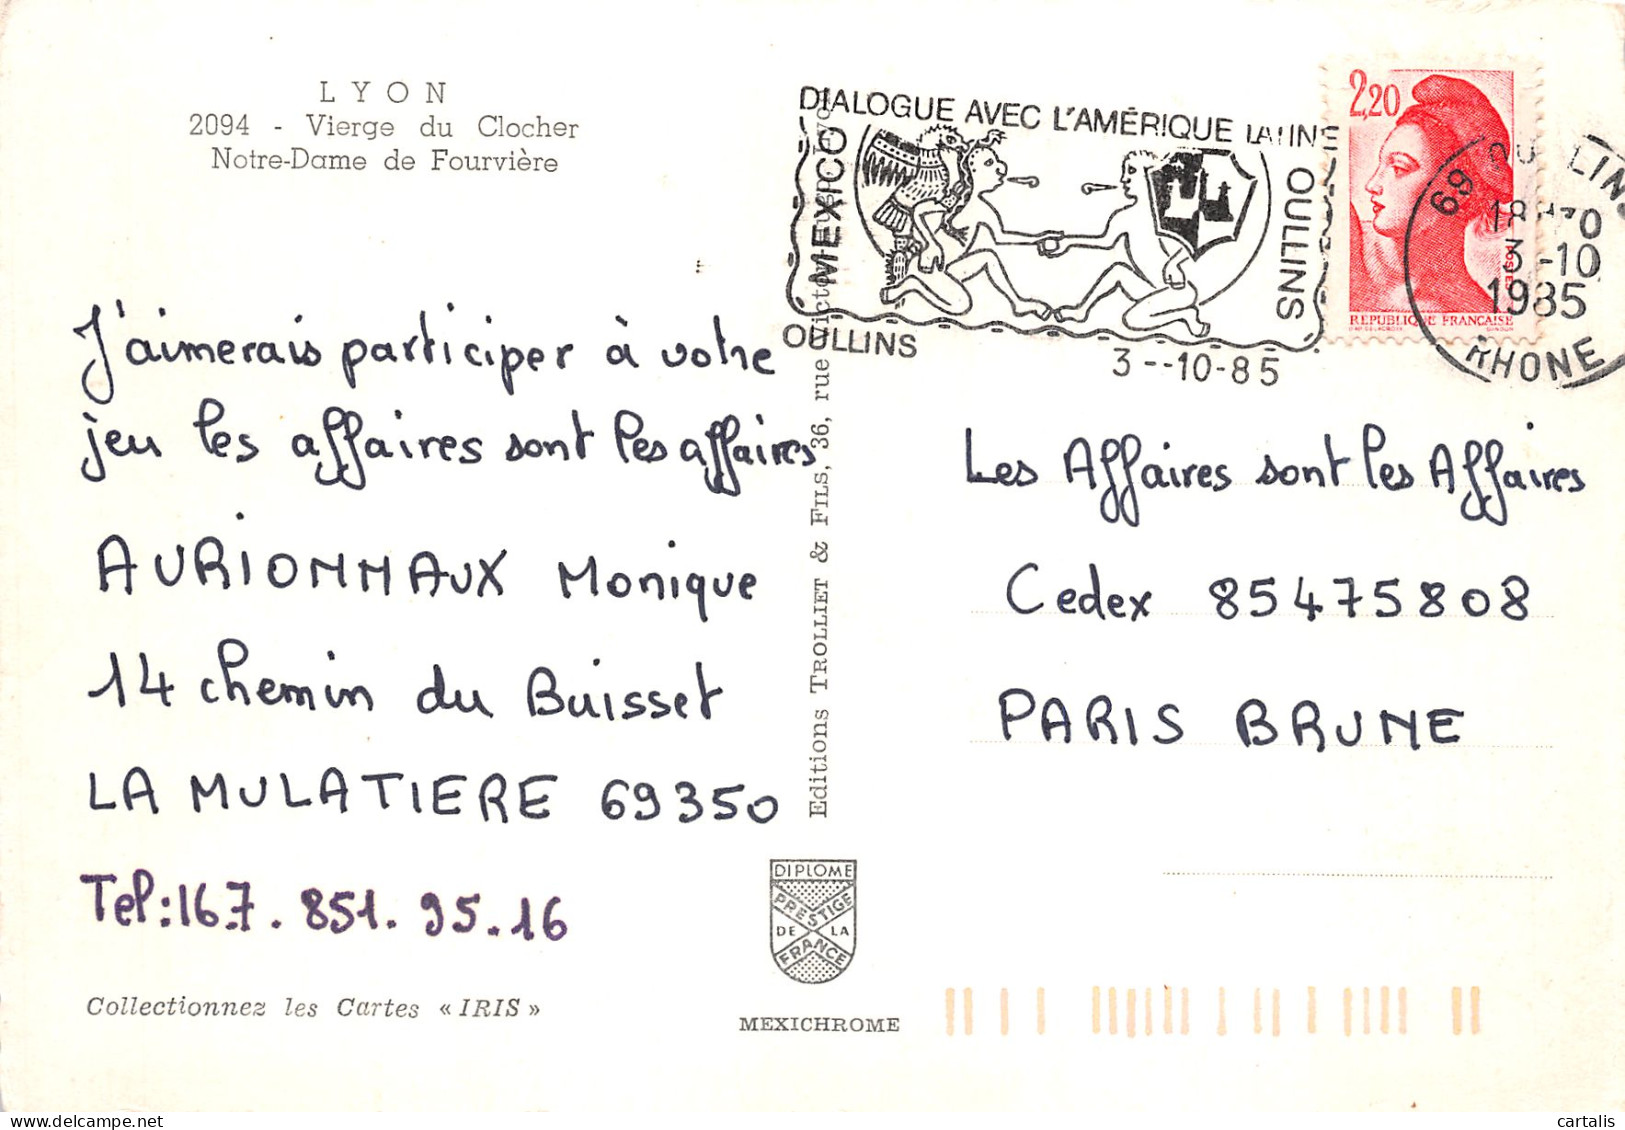 LYON
2094 - Vierge du Clocher
Notre-Dame de Fourvière
J'aimerais participer à votre
jeu les affaires sont les affaires
AURIONNAUX Monique
14 chemin du Buisset
LA MULATIERE 69350
Tel:167.851.95.16
Collectionnez les Cartes « IRIS »
Editions TROLLIET & FILS, 36, rue Victor
DIPLOME
PRESTIGE
DE LA
FRANCE
MEXICHROME
DIALOGUE AVEC L'AMÉRIQUE LATINE
MEXICO
OULLINS
OULLINS
3--10-85
2,20
POSTES
REPUBLIQUE FRANÇAISE
69 OULLINS
18
3-10
1985
RHONE
Les Affaires sont les Affaires
Cedex 85475808
PARIS BRUNE
cartalis